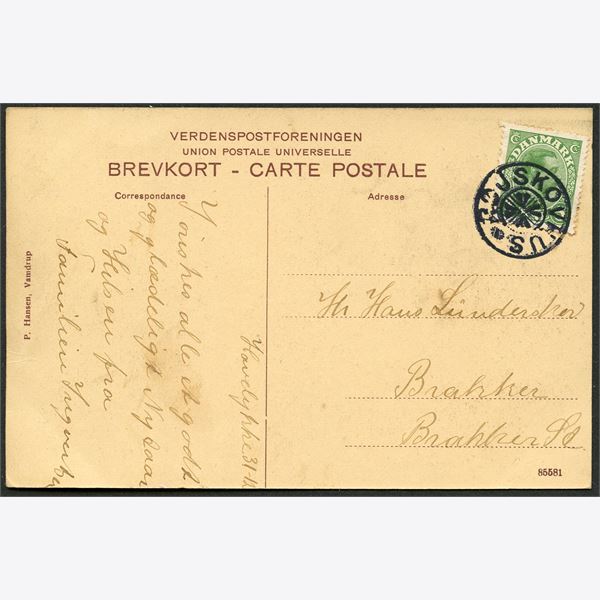 VERDENSPOSTFORENINGEN
UNION POSTALE UNIVERSELLE
BREVKORT - CARTE POSTALE
Correspondance
Adresse
DANMARK
HØJSKOVHUS
P. Hansen, Vamdrup
I ønskes alle et godt
og glædeligt Nytaar
og Hilsen fra
Familien
31-12
Hr Hans
Brakker
Brakker St
85581